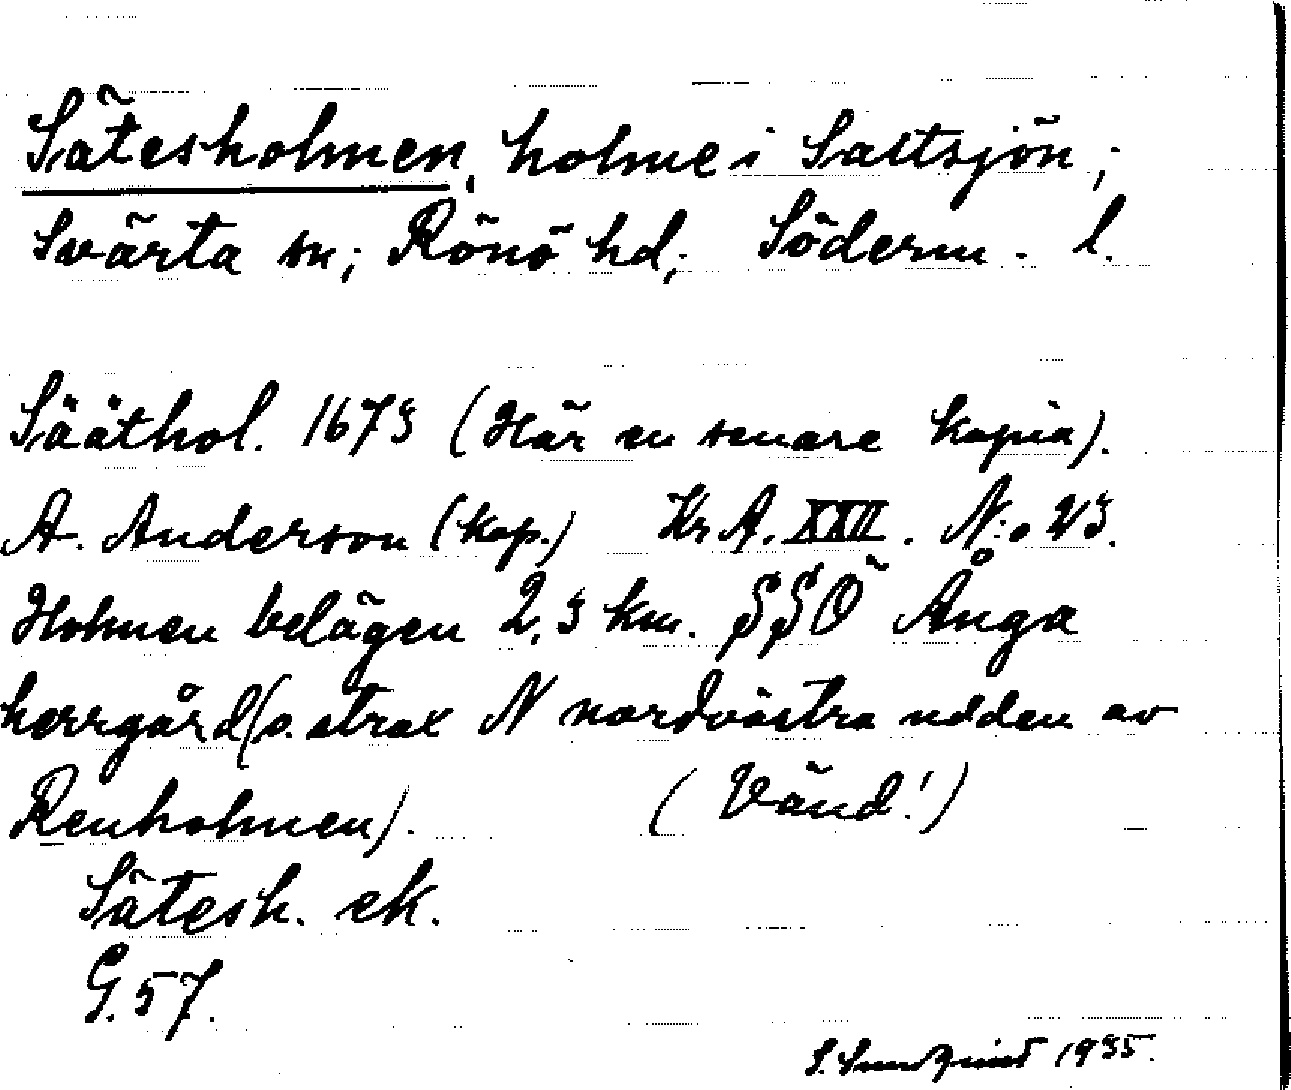 Sätesholmen, holme i Saltsjön;
Svärta sn; Rönö hd; Söderm. l.
Sääthol. 1673 (Här en senare kopia).
A. Anderson (kop.) Kr A. XXII. N:o 23.
Holmen belägen 2,3 km. SSÖ Ånga
herrgård (o. strax N nordvästra udden av
Renholmen). (Vänd!)
Sätesh. ek.
G. 57.
S. Sundquist 1935.